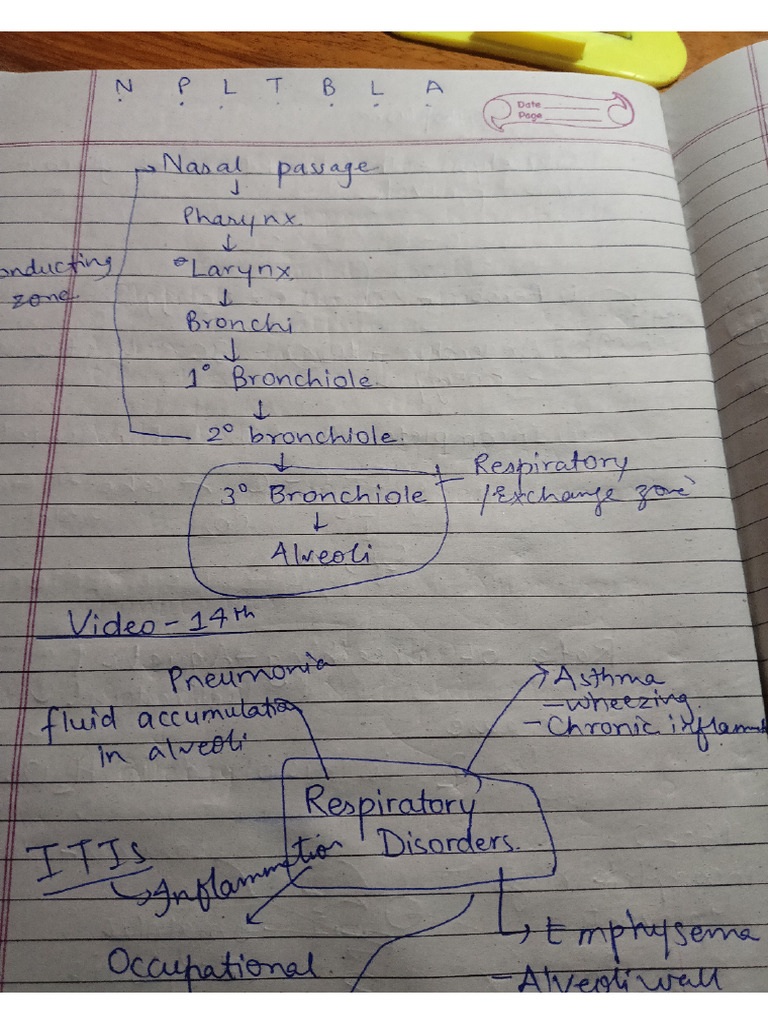 N P L T B L A
Date
Page
→ Nasal passage
↓
Pharynx
↓
Larynx
onducting
zone
↓
Bronchi
↓
1° Bronchiole
↓
2° bronchiole
↓
3° Bronchiole
Respiratory
/Exchange zone
↓
Alveoli
Video - 14th
Pneumonia
fluid accumulation
in alveoli
→ Asthma
- wheezing
- Chronic inflamm
Respiratory
Disorders.
ITIs
→ Inflammation
Occupational
→ Emphysema
- Alveoli wall